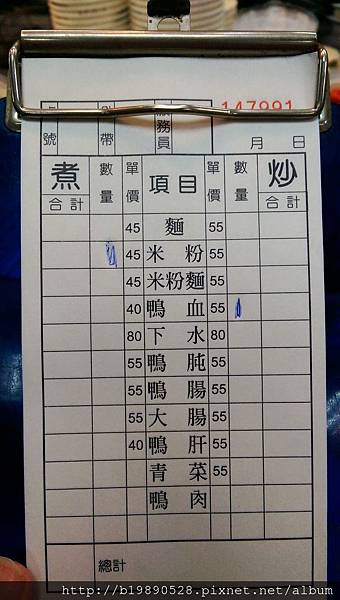 147991
號 帶 務員 月 日
煮 合計 數量 單價 項目 單價 數量 炒 合計
45 麵 55
45 米粉 55
45 米粉麵 55
40 鴨血 55
80 下水 80
55 鴨肫 55
55 鴨腸 55
55 大腸 55
40 鴨肝 55
青菜 55
鴨肉
總計
http://b19890528.pixnet.net/album